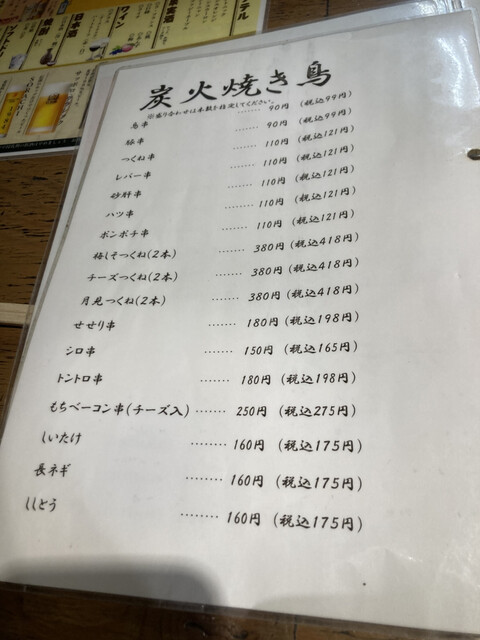 ワイン
日本酒
焼酎
炭火焼き鳥
※盛り合わせは本数を指定してください。
鳥串 ‥‥‥ 90円 (税込99円)
豚串 ‥‥‥ 90円 (税込99円)
つくね串 ‥‥‥ 110円 (税込121円)
レバー串 ‥‥‥ 110円 (税込121円)
砂肝串 ‥‥‥ 110円 (税込121円)
ハツ串 ‥‥‥ 110円 (税込121円)
ボンボチ串 ‥‥‥ 110円 (税込121円)
梅しそつくね(2本) ‥‥‥ 380円 (税込418円)
チーズつくね(2本) ‥‥‥ 380円 (税込418円)
月見つくね(2本) ‥‥‥ 380円 (税込418円)
せせり串 ‥‥‥ 180円 (税込198円)
シロ串 ‥‥‥ 150円 (税込165円)
トントロ串 ‥‥‥ 180円 (税込198円)
もちベーコン串(チーズ入) ‥‥‥ 250円 (税込275円)
しいたけ ‥‥‥ 160円 (税込175円)
長ネギ ‥‥‥ 160円 (税込175円)
ししとう ‥‥‥ 160円 (税込175円)